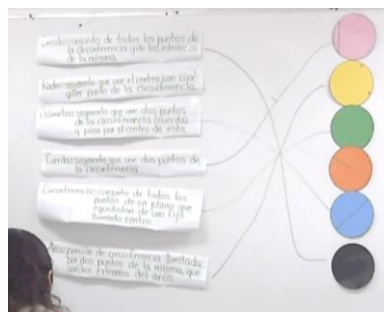 Círculo: conjunto de todos los puntos de
la circunferencia y de los interiores
de la misma.
Radio: segmento que une el centro con cual
quier punto de la circunferencia.
Diámetro: segmento que une dos puntos
de la circunferencia (cuerda)
y pasa por el centro de esta.
Cuerda: segmento que une dos puntos de
la circunferencia.
Circunferencia: conjunto de todos los
puntos de un plano que
equidistan de uno fijo
llamado centro.
Arco: porción de circunferencia limitada
por dos puntos de la misma, que
son los extremos del arco.